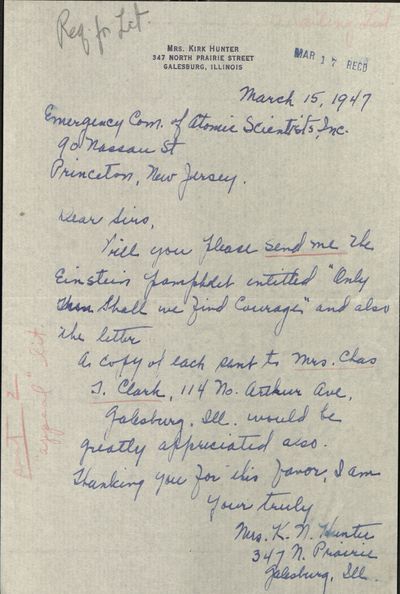 Req. for Let.
mailing List
MRS. KIRK HUNTER
347 NORTH PRAIRIE STREET
GALESBURG, ILLINOIS
MAR 17 RECD
March 15, 1947
Emergency Com. of Atomic Scientists, Inc.
90 Nassau St
Princeton, New Jersey.
Dear Sirs,
Will you please send me the
Einstein pamphlet entitled "Only
Then Shall we Find Courage" and also
the letter
A copy of each sent to Mrs. Chas
T. Clark, 114 No. Arthur Ave,
Galesburg. Ill. would be
greatly appreciated also.
Thanking you for this favor, I am
Your truly
Mrs. K. N. Hunter
347 N. Prairie
Galesburg, Ill.
"appeal" let.